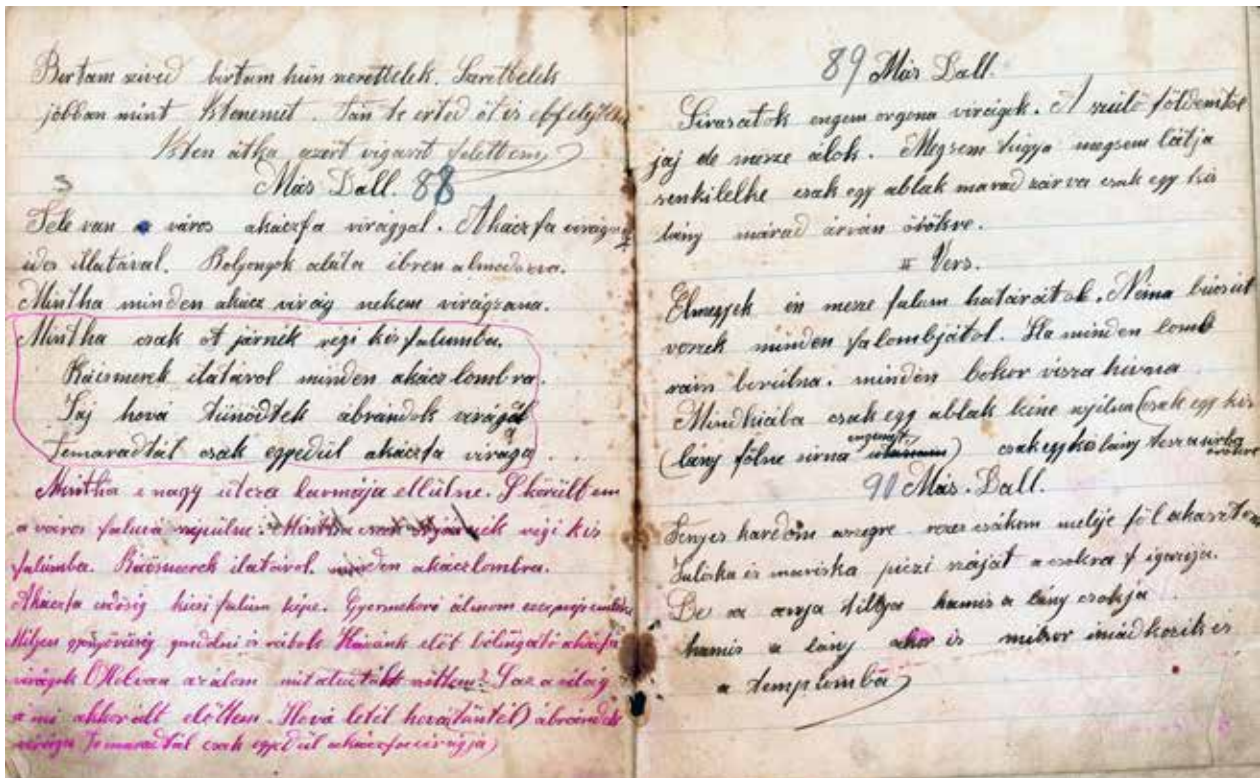 Birtam szived birtam hűn szerettelek. Szerettelek
jobban mint Istenemet. Tán te érted őt is elfelejtettem
Isten átka azért vigasít felettem
Más Dall. 88
Tele van a város akáczfa virággal. Akáczfa virágnak
ides illatával. Bolyongok alúta ibren álmodozva.
Mintha minden akácz virág nekem virágzana.
Mintha csak ot járnék végi kis falumba.
Ráismerek ilatárol minden akácz lombra.
Jaj hová tünödtek ábrándok virága
Temaradtál csak eggedül akáczfa virága . .
Mintha e nagy útcza larmája ellülne. S körültem
a város faluvá népülne. Mintha csak végi kis
falúmba. Ráösmerek ilatárol. minden akáczlombra.
Akáczfa erdőség kicsi falum képe. Gyermekori álmom
Milyen gyönyörűség is Házánk elöt bólingató akáczfa
virágok (Holvan az álom mit a világ
a mi akkor ált elöttem. Hová letél hovátüntél) ábrándok
virága Temaradtál csak eggedül akáczfavirágja)
89 Más Dall.
Sirassatok engem orgona virágok. A szülő földemtöl
jaj de messze álok. Megsem túgya megsem látja
senkilelke csak egy ablak marad zárva csak egy kis
lány márad árván örökre.
II Vers.
Elmegyek én messze falum határátol. Néma búcsút
veszek minden falombjátol. Ha minden lomb
rám borúlna. minden bokor visza hivna
Mindhiába csak egy ablak leine nyilva (csak egy kis
(lány fölne sirna engemet) csak egy kis lány tesz a sirba
örökre
90 Más. Dall.
Fenyes kardom szegre rezes csákom melije föl akasztom
Juliska is mariska piczi száját a csokra f igazija.
De az anyja tiltya hamis a lány csokja
hamis a lány akor is mikor imádkozik is
a templomba